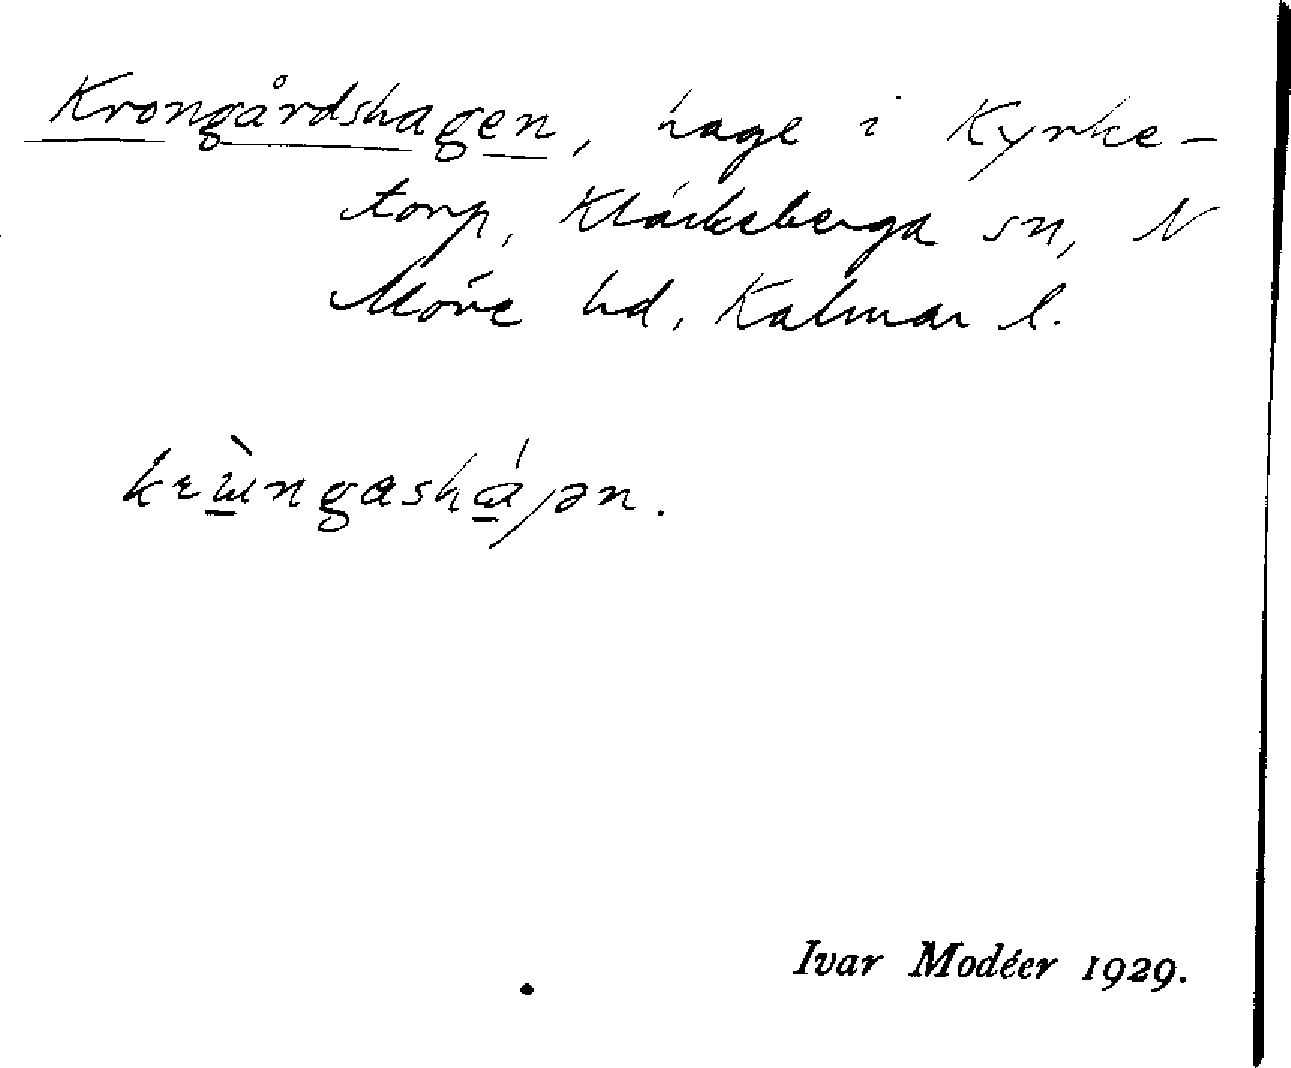 Krongårdshagen, hage i Kyrke-
torp, Kläckeberga sn, N
Möre hd, Kalmar l.
krɯ̀ngashájən.
Ivar Modéer 1929.